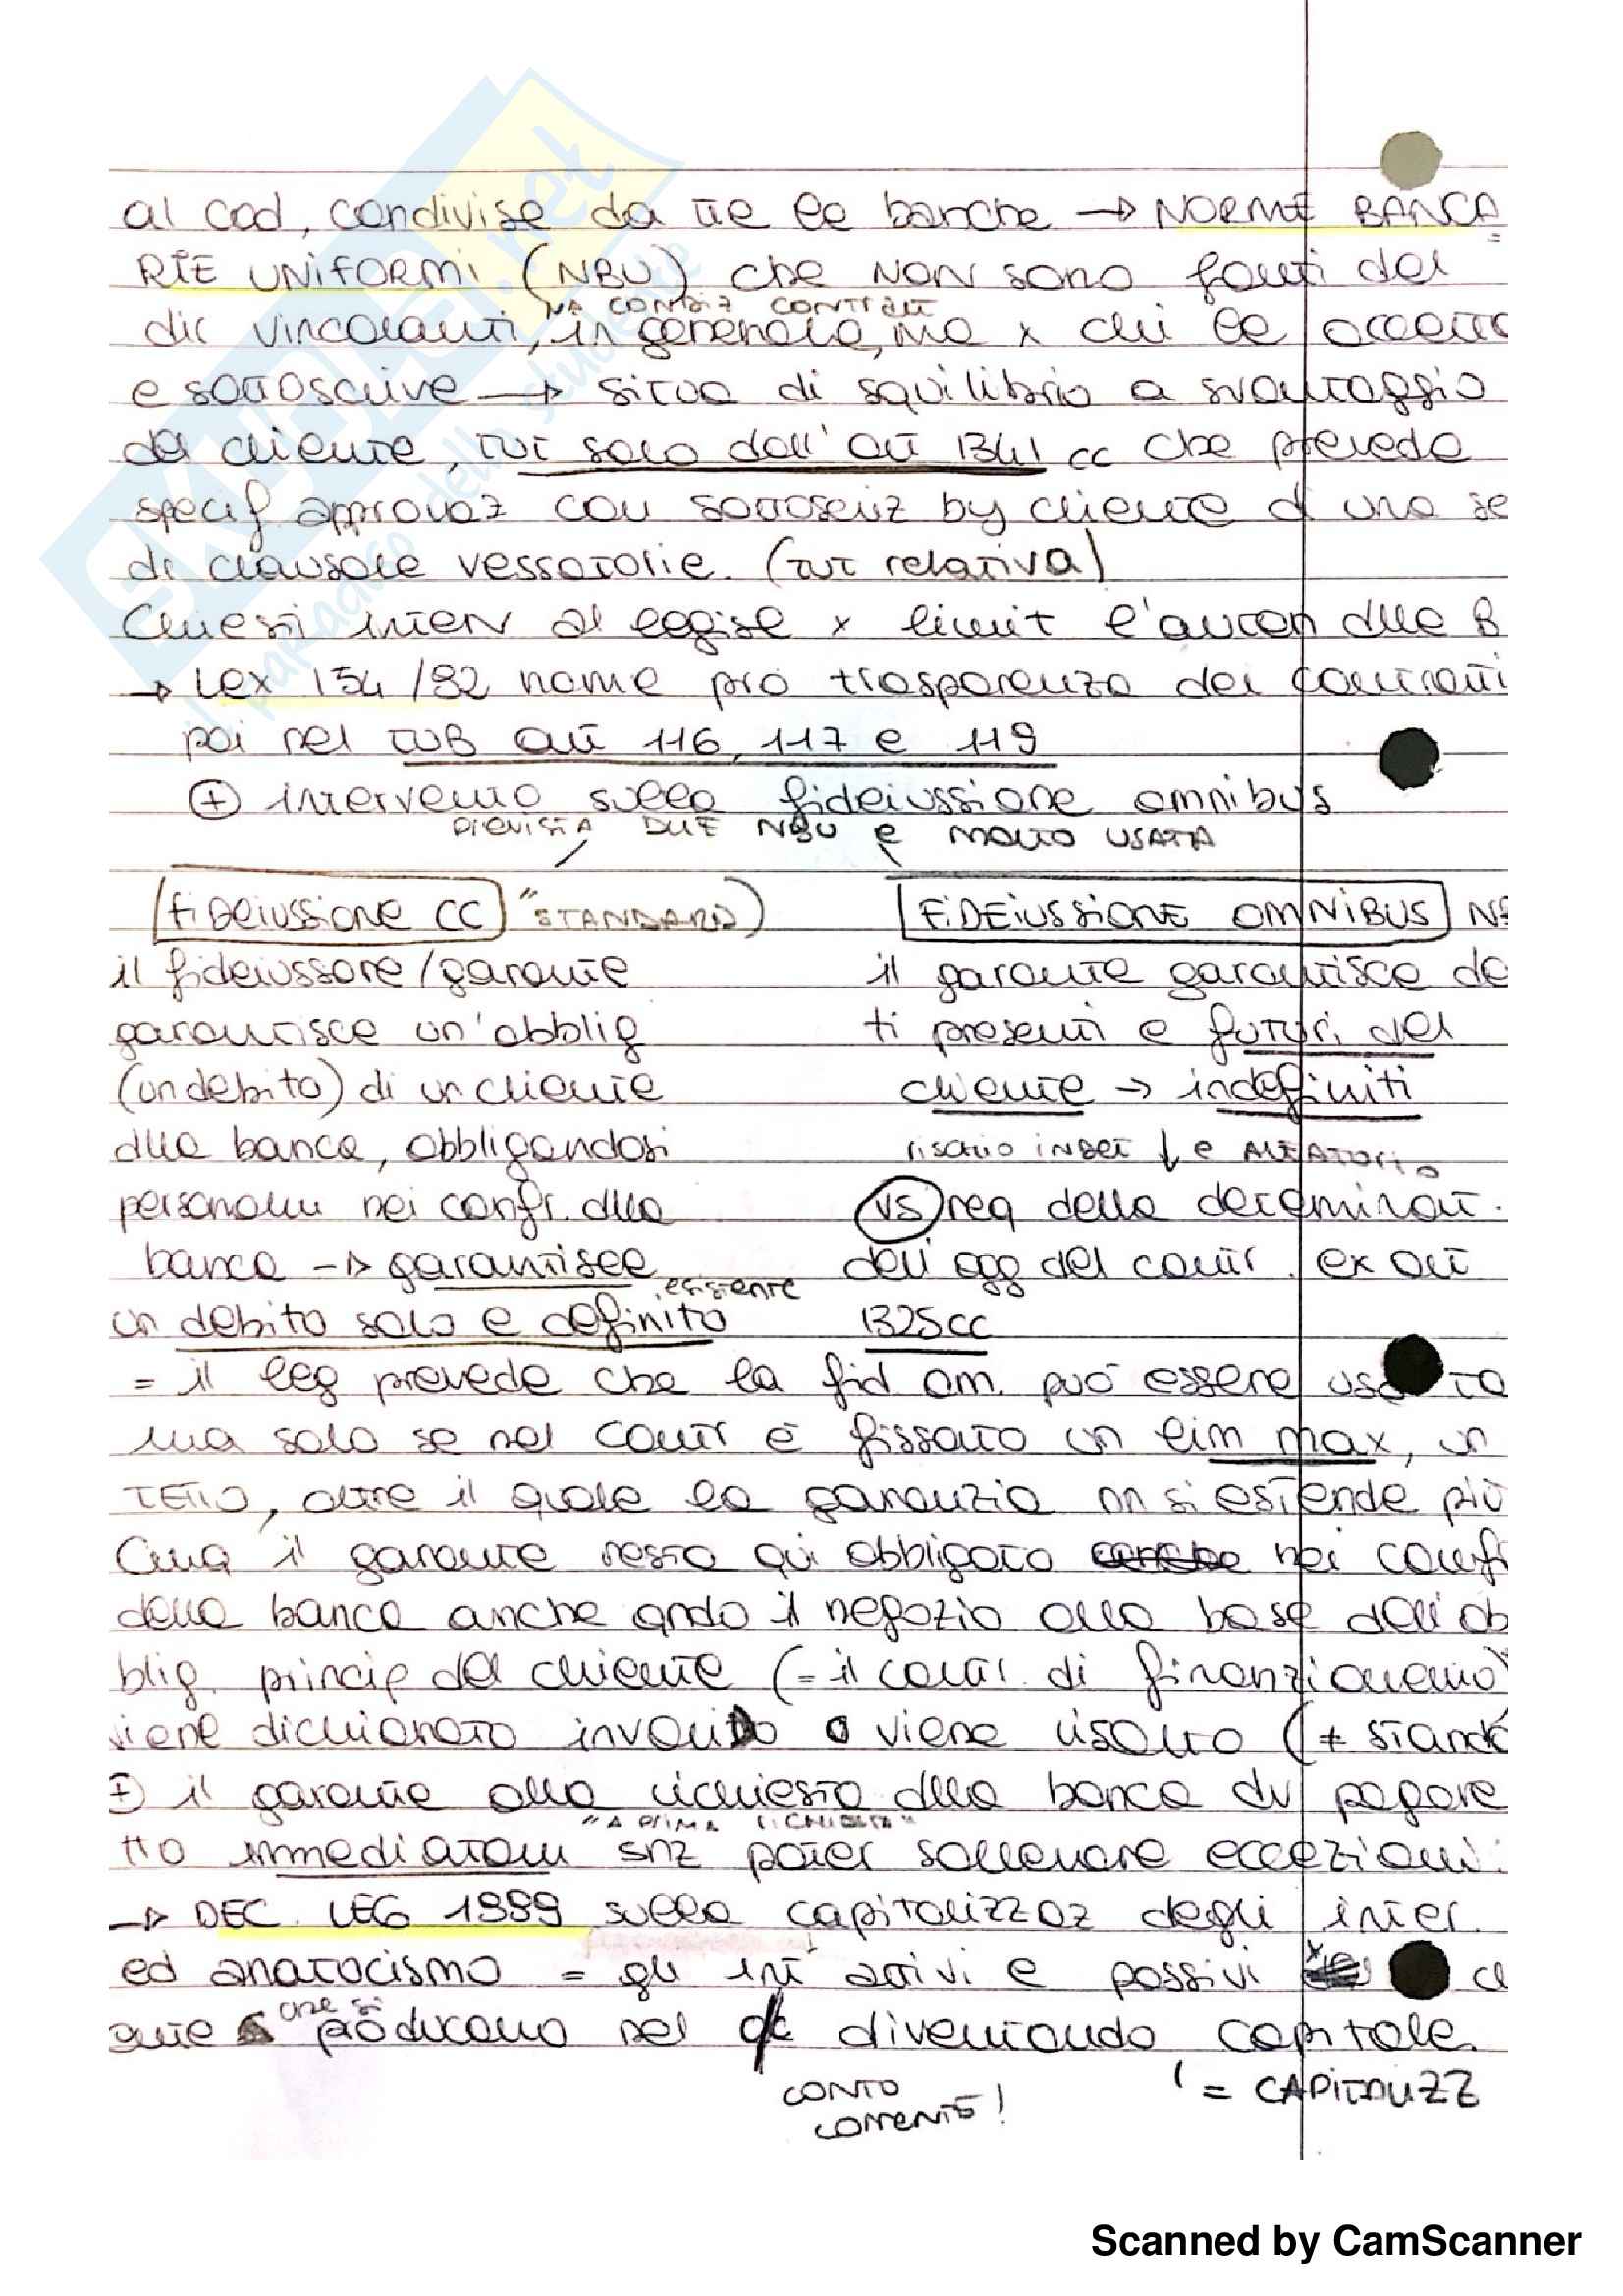 al cod, condivise da tte le banche → NORME BANCA=
RIE UNIFORMI (NBU) che NON sono fonti del
MA CONDIZ CONTRATT
dir vincolanti, in generale, ma x chi le accetta
e sottoscrive → situa di squilibrio a svantaggio
del cliente, tut solo dall' art 1341 cc che prevede
specif approvaz con sottoscriz by cliente d una se
di clausole vessatorie. (tut relativa)
Chiesti interv al legisl x limit l'auton dlle B
→ Lex 154/92 norme pro trasparenza dei contratti
poi nel TUB artt 116, 117 e 119
⊕ intervento sulla fideiussione omnibus
PREVISTA DLLE NBU e MOLTO USATA
FIDEIUSSIONE CC "STANDARD)
FIDEIUSSIONE OMNIBUS
il fideiussore/garante
garantisce un'obblig
(un debito) di un cliente
dlla banca, obbligandosi
personalm nei confr. dlla
banca → garantisce
esistente
un debito solo e definito
il garante garantisce de
ti presenti e futuri del
cliente → indefiniti
rischio indet ↓ e ALEATORIO
VS req della determinat.
dell' ogg del contr. ex art
1325cc
= il leg prevede che la fid om. può essere usata
ma solo se nel contr è fissato un lim max, un
TETTO, oltre il quale la garanzia nn si estende più
Cmq il garante resta qui obbligato nei confr
della banca anche qndo il negozio alla base dell'ob
blig. princip del cliente (= il contr. di finanziamento)
viene dichiarato invalido o viene risolto (≠ standa
⊕ il garante alla richiesta dlla banca dv pagare
"A PRIMA RICHIESTA"
tto immediatam snz poter sollevare eccezioni.
→ DEC. LEG 1999 sulla capitalizzaz degli inter.
ed anatocismo = gli int attivi e passivi x cl
che si
ente producono nel c/c diventando capitale.
CONTO
CORRENTE!
= CAPITALIZZ
SKUOLA.net
il paradiso dello studente
Scanned by CamScanner